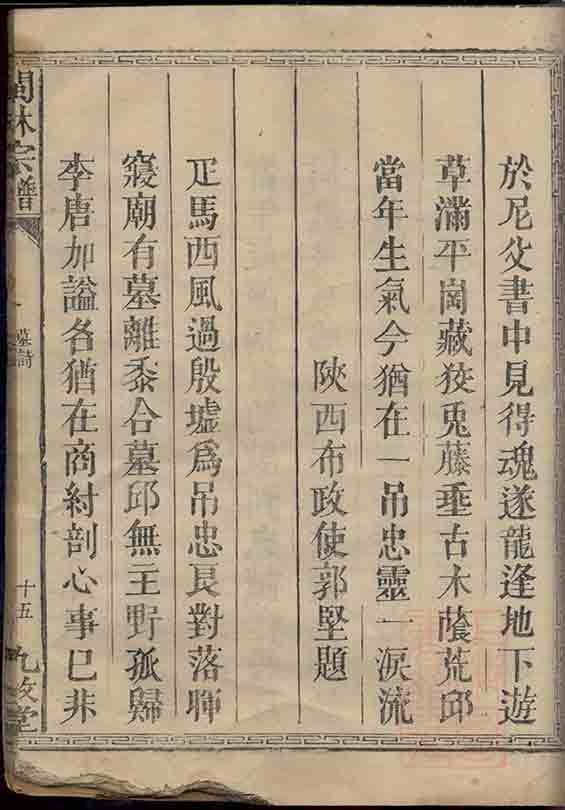 於尼父書中見得魂遂龍逢地下遊
草滿平崗藏狡兎藤埀古木蔭荒邱
當年生氣今猶在一吊忠靈一淚流
陝西布政使郭堅題
疋馬西風過殷墟爲吊忠良對落暉
寢廟有墓離黍合墓邱無主野孤歸
李唐加謚名猶在商紂剖心事已非
林宗譜
墓詩
十五
九牧堂